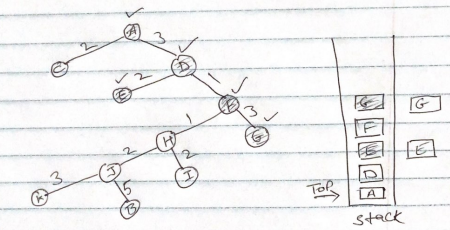 A
2
3
C
D
2
1
E
F
1
3
G
H
2
2
J
I
3
5
K
B
G
G
F
E
E
D
TOP
A
stack